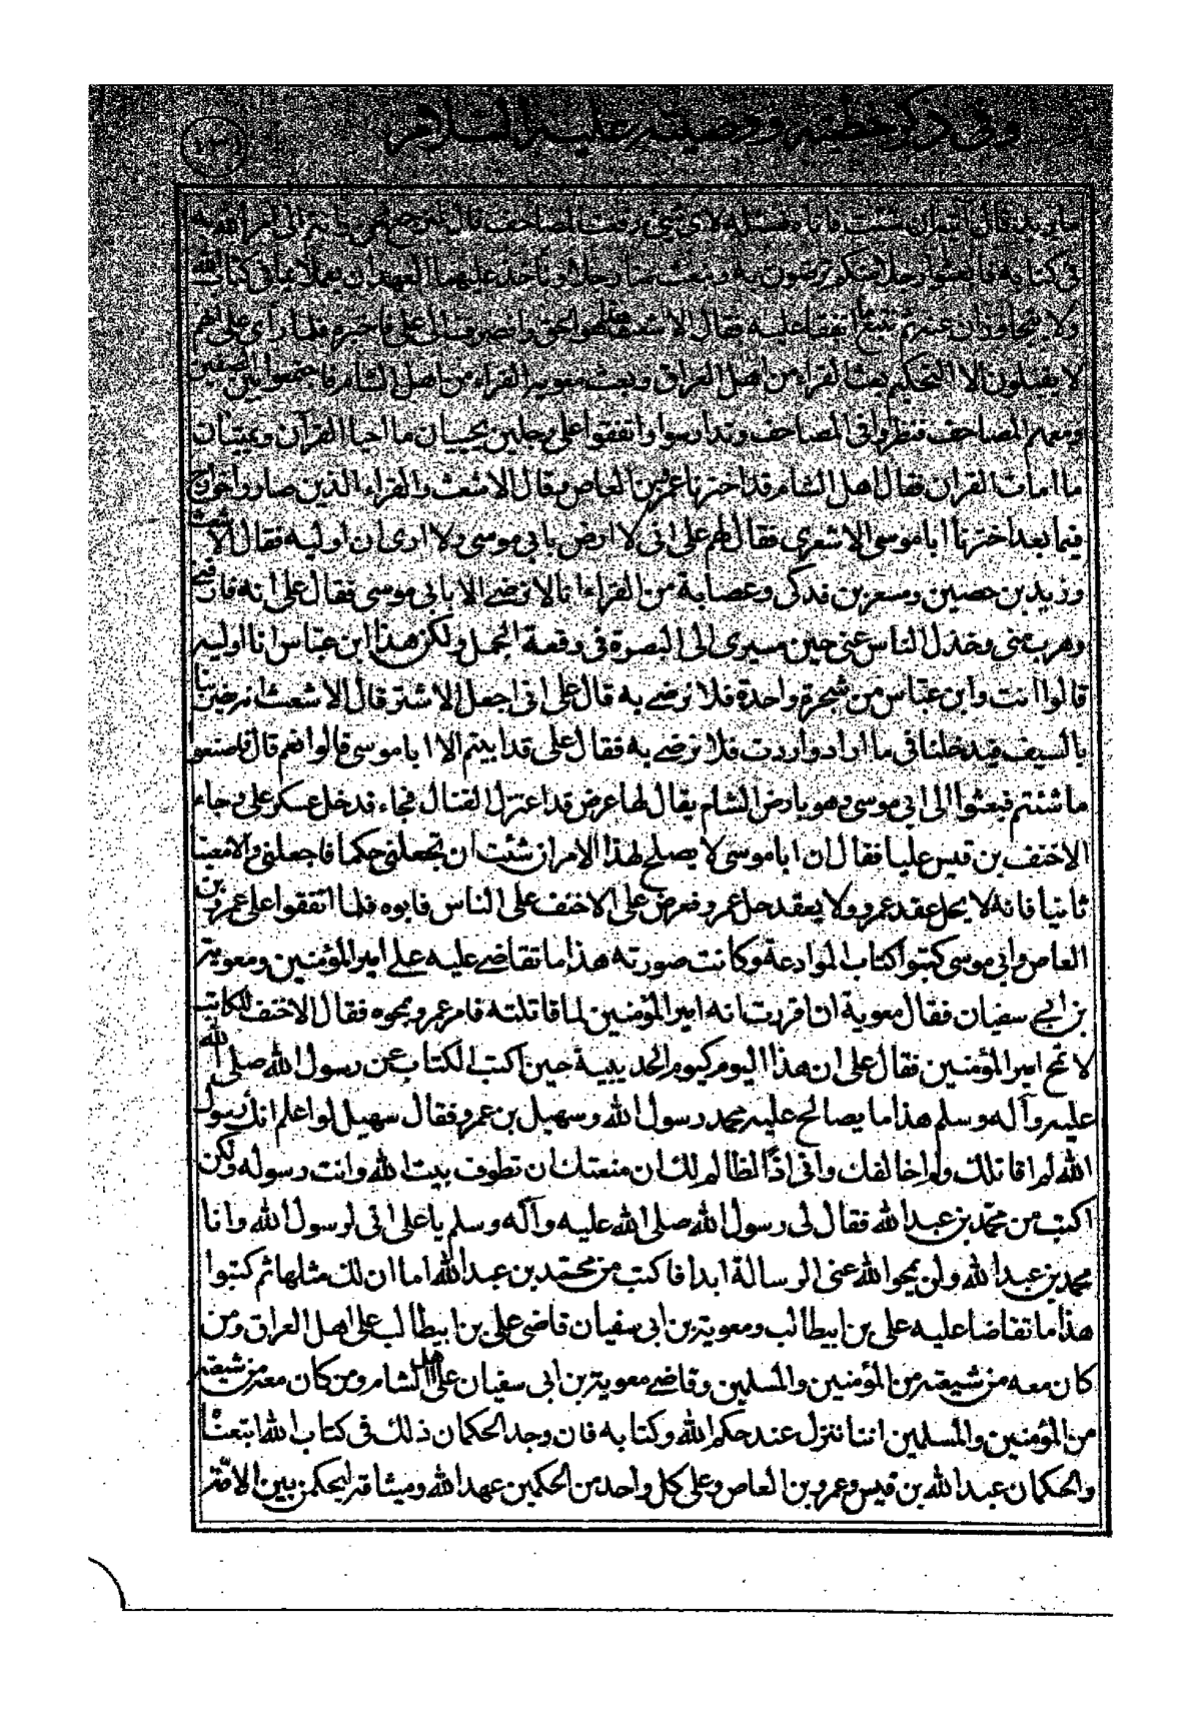 وفى ذكر خطبته ووصيته عليه السلام
ما يريد قال ائته ان شئت فاتاه فسئله لاى شئ رفعت المصاحف قال لنرجع نحن وانتم الى امر الله به
فى كتابه فابعثوا رجلا منكم ترضون به ونبعث منا رجلا وناخذ عليهما العهد ان يعملا بما فى كتاب الله
ولا يتجاوزان عنه ثم نتبع ما اتفقا عليه فقال الاشعث هذا هو الحق وانصرف الى على فاخبره فلما رأى على انهم
لا يقبلون الا التحكيم بعث القراء من اهل العراق وبعث معوية القراء من اهل الشام فاجتمعوا بين الصفين
ومعهم المصاحف فنظروا فى المصاحف وتدارسوا واتفقوا على رجلين يحييان ما احيا القرآن ويميتان
ما امات القران فقال اهل الشام قد اخترنا عمرو بن العاص وقال الاشعث والقراء الذين صاروا خوارج
فيما بعد اخترنا ابا موسى الاشعرى فقال لهم على انى لا ارض بابى موسى ولا ارى ان اوليه فقال الاشعث
وزيد بن حصين ومسعر بن فدكى وعصابة من القراء انا لا نرضى الا بابى موسى فقال على انه فارقنى
وهرب منى وخذل الناس عنى حين مسيرى الى البصرة فى وقعة الجمل ولكن هذا ابن عباس انا اوليه
قالوا انت وابن عباس من شجرة واحدة فلا نرضى به قال على انى اجعل الاشتر قال الاشعث انرضى بنا
بالسيف فيدخلنا فى ما اراد واردت فلا نرضى به فقال على قد ابيتم الا ابا موسى قالوا نعم قال فاصنعوا
ما شئتم فبعثوا الى ابى موسى وهو بارض الشام يقال لها عرض قد اعتزل القتال فجاء فدخل عسكر على وجاء
الاحنف بن قيس عليا فقال ان ابا موسى لا يصلح لهذا الامر ان شئت ان تجعلنى حكما فاجعلنى والا معينا
ثانيا فانه لا يحل عقد عمرو ولا يعقد حل عمرو فعرض على الاحنف على الناس فابوه فلما اتفقوا على عمرو بن
العاص وابى موسى كتبوا كتاب الموادعة وكانت صورته هذا ما تقاضى عليه على امير المؤمنين ومعوية
بن ابى سفيان فقال معوية ان اقررت انه امير المؤمنين لما قاتلته فامر عمرو بمحوه فقال الاحنف للكاتب
لا تمح امير المؤمنين فقال على ان هذا اليوم كيوم الحديبية حين اكتب الكتاب عن رسول الله صلى الله
عليه وآله وسلم هذا ما يصالح عليه محمد رسول الله وسهيل بن عمرو فقال سهيل لو اعلم انك رسول
الله لم اقاتلك ولم اخالفك وانى اذًا لظالم لك ان منعتك ان تطوف بيت الله وانت رسوله ولكن
اكتب من محمد بن عبد الله فقال لى رسول الله صلى الله عليه وآله وسلم يا على انى لرسول الله وانا
محمد بن عبد الله ولن يمحوا الله عنى الرسالة ابدا فاكتب من محمد بن عبد الله اما ان لك مثلها ثم كتبوا
هذا ما تقاضا عليه على بن ابيطالب ومعوية بن ابى سفيان قاضى على بن ابيطالب على اهل العراق ومن
كان معه من شيعته من المؤمنين والمسلمين وقاضى معوية بن ابى سفيان على اهل الشام ومن كان معه من شيعته
من المؤمنين والمسلمين اننا ننزل عند حكم الله وكتابه فان وجد الحكمان ذلك فى كتاب الله اتبعنا
والحكمان عبد الله بن قيس وعمرو بن العاص وعلى كل واحد من الحكمين عهد الله وميثاقه ليحكمن بين الامة